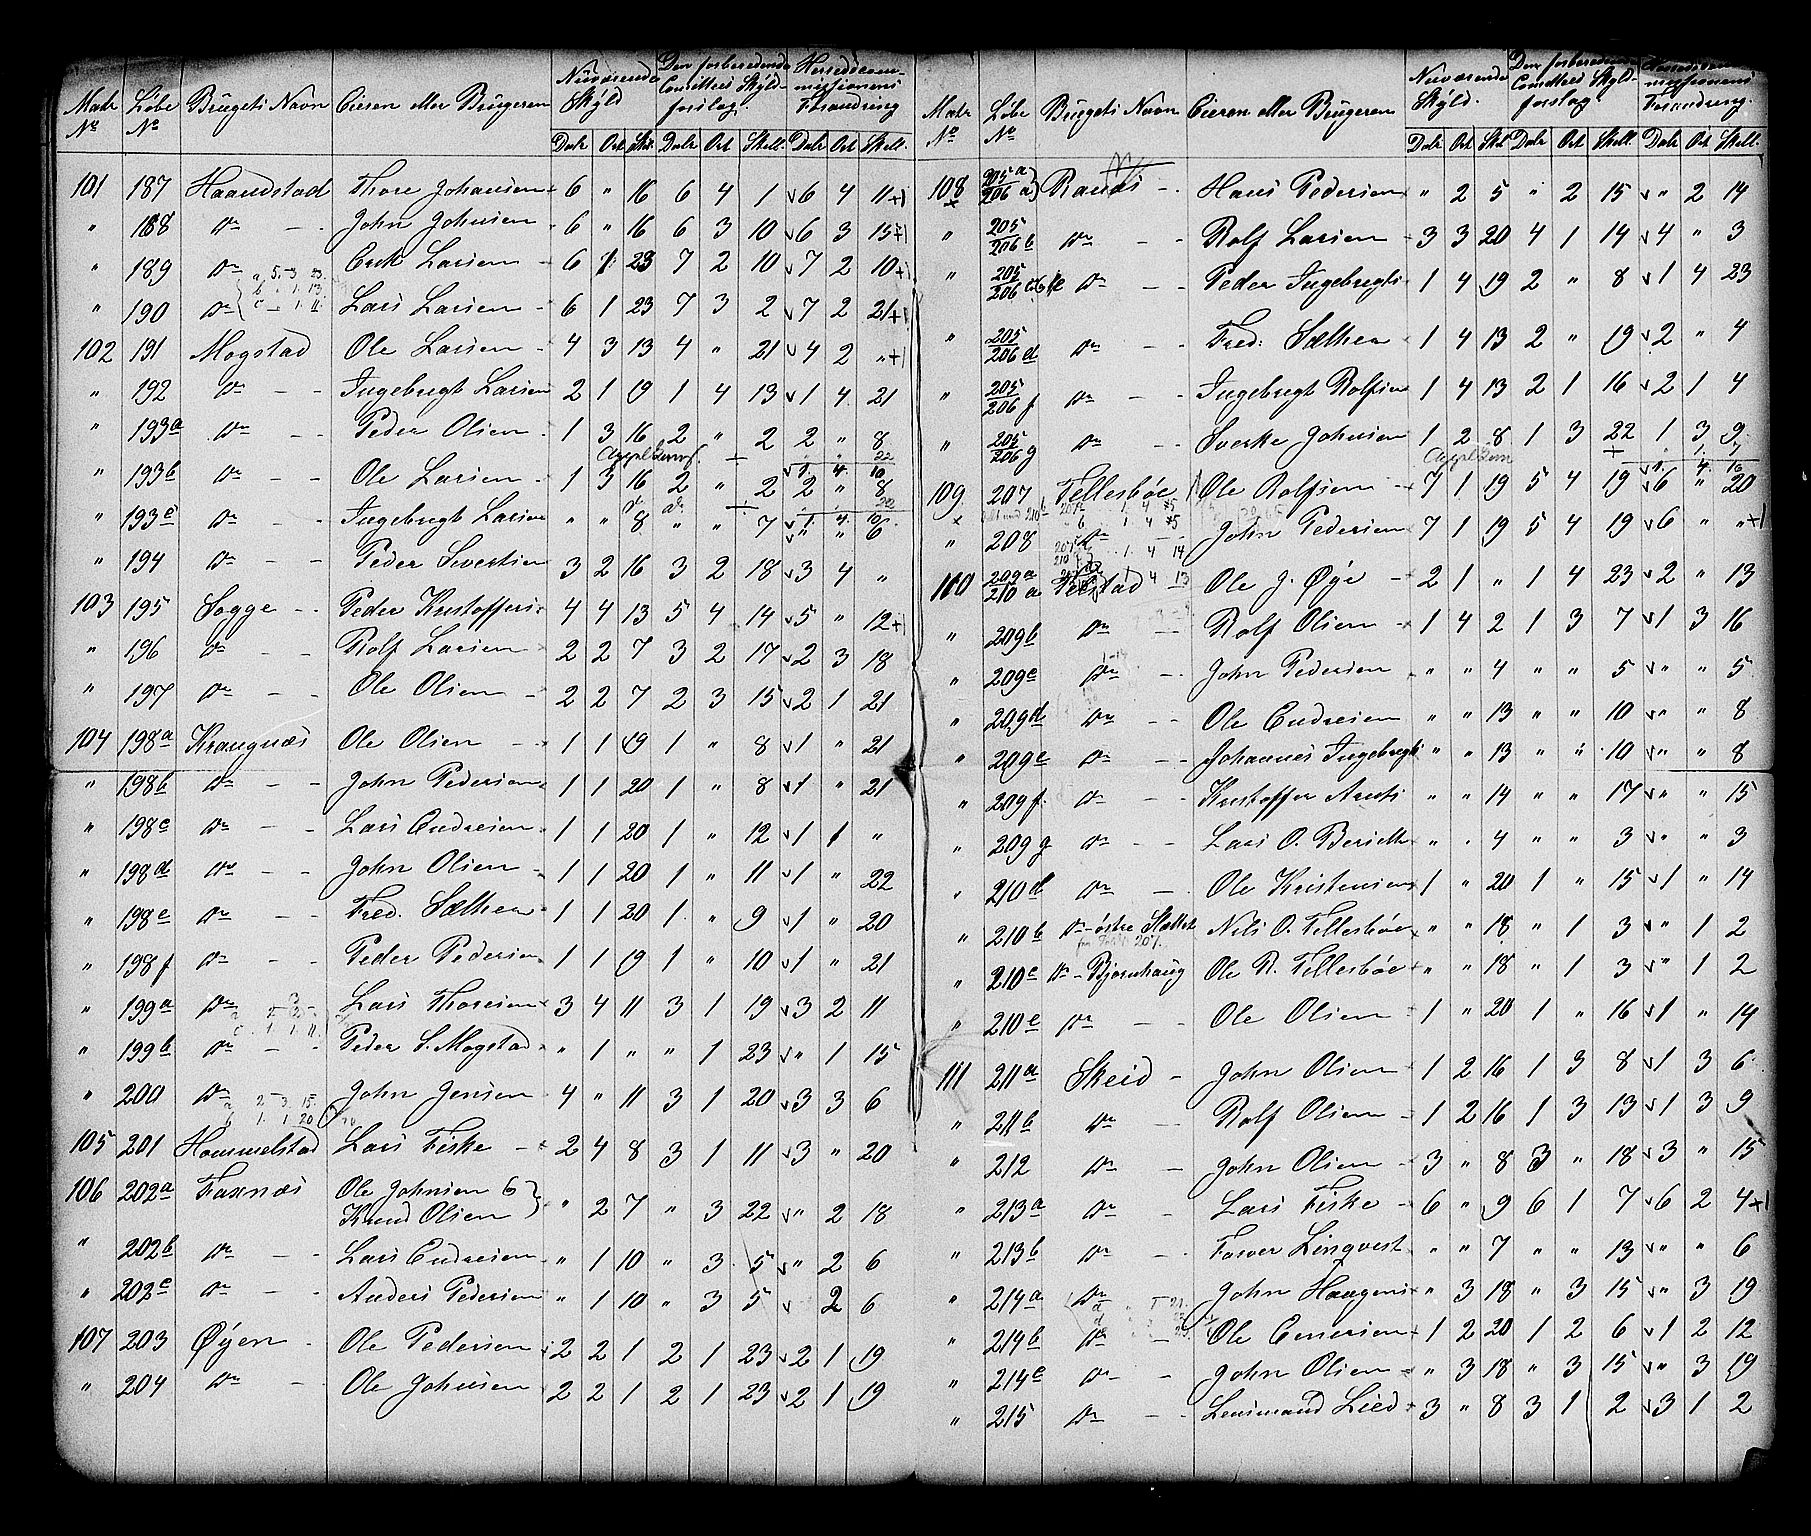 Matr Løbe Brugets Navn Eieren eller Brugeren Nuværende Skyld Den forberedende Comittees Skyldforslag Herredscommissionens Forandring
No No Daler Ort Skil. Daler Ort Skill. Daler Ort Skill.
101 187 Haandstad Thore Johansen 6 " 16 6 4 1 v 6 4 11 +1
" 188 Do - - John Johnsen 6 " 16 6 3 10 v 6 3 15 +1
" 189 Do Erik Larsen 6 1 23 7 2 10 v 7 2 10 +1
" 190 Do Lars Larsen 6 1 23 7 3 2 v 7 2 21 +1
102 191 Mogstad Ole Larsen 4 3 13 4 " 21 v 4 2 " +1
" 192 Do - - Ingebrigt Larsen 2 1 19 1 4 13 v 1 4 21
" 193a Do - - Peder Olsen 1 3 16 2 " 2 2 " 8
" 193b Do - - Ole Larsen 1 3 16 2 " 2 2 " 8
" 193c Do - - Ingebrigt Larsen " " 8 " " 7 v " " 6
" 194 Do - - Peder Sivertsen 3 2 16 3 2 18 v 3 4 "
103 195 Sogge - - Peder Kristoffers. 4 4 13 5 4 14 v 5 " 12 +1
" 196 Do - - Rolf Larsen 2 2 7 3 2 17 v 2 3 18
" 197 Do - - Ole Olsen 2 2 7 2 3 15 v 2 1 21
104 198a Krangnæs Ole Olsen 1 1 19 1 " 8 v 1 " 21
" 198b Do - - John Pedersen 1 1 20 1 " 8 v 1 " 21
" 198c Do - - Lars Endresen 1 1 20 1 " 12 v 1 1 "
" 198d Do - - John Olsen 1 1 20 1 " 11 v 1 " 22
" 198e Do - - Fred. Sæther 1 1 20 1 " 9 v 1 " 20
" 198f Do - - Peder Pedersen 1 1 19 1 " 10 v 1 " 21
" 199a Do Lars Thoresen 3 4 11 3 1 19 v 3 2 11
" 199b Do - - Peder S. Mogstad " 1 " " 1 23 v " 1 15
" 200 Do John Jensen 4 " 11 3 1 20 v 3 3 6
105 201 Hammelstad Lars Fiske 2 4 8 3 1 11 v 3 " 20
106 202a Faxnæs Ole Johnsen &
Knud Olsen } " 2 7 " 3 22 v " 2 18
" 202b Do - - Lars Endresen " 1 10 " 3 5 v " 2 6
" 202c Do - - Anders Pedersen " 1 10 " 3 5 v 2 6
107 203 Øyen Ole Pedersen 2 2 1 2 1 23 v 2 1 19
" 204 Do - Ole Johnsen 2 2 1 2 1 23 v 2 1 19
Matr Løbe Brugets Navn Eieren eller Brugeren Nuværende Skyld. Den forberedende Comittees Skyldforslag Herredscommissionens Forandring.
No No Daler Ort Skil Daler Ort Skill. Daler Ort Skill.
108 205a/206a Ranæs - Hans Pedersen " 2 5 " 2 15 v " 2 14
" 205/206b Do - - Rolf Larsen 3 3 20 4 1 14 v 4 " 3
" 205/206c&e Do - - Peder Ingebrigts 1 4 19 2 " 8 v 1 4 23
" 205/206d Do Fred: Sæther 1 4 13 2 " 19 v 2 " 4
" 205/206f Do - - Ingebrigt Rolfsen 1 4 13 2 1 16 v 2 1 4
" 205/206g Do - - Sverke Johnsen 1 2 8 1 3 22 1 3 9
109 207 Tellesbøe Ole Rolfsen 7 1 19 5 4 19 v 6 " 20
" 208 Do John Pedersen 7 1 19 5 4 19 v 6 " " +1
110 209a/210a Ole J. Øye 2 1 " 1 4 23 v 2 " 13
" 209b Do - - Rolf Olsen 1 4 2 1 3 7 v 1 3 16
" 209c Do - John Pedersen " " 4 " " 5 v " " 5
" 209d Do - - Ole Endresen " " 13 " " 10 v " " 8
" 209e Do - - Johannes Ingebrigts " " 13 " " 10 v " " 8
" 209f. Do - - Kristoffer Arnts " " 14 " " 17 v " " 15
" 209g Do - - Lars O. Berseth " " 4 " " 3 v " " 3
" 210d Do - Ole Kristensen 1 " 20 1 " 15 v 1 " 14
" 210b Do - østre Slettet Nils O. Tellesbøe " " 18 " 1 3 v " 1 2
" 210c Do - Bjørnhaug Ole R. Tellesbøe " " 18 " 1 3 v " 1 2
" 210e Do - - Ole Olsen 1 " 20 1 " 16 v 1 " 14
111 211a Skeid - John Olsen 1 2 16 1 3 8 v 1 3 6
" 211b Do - Rolf Olsen 1 2 16 1 3 13 v 1 3 9
" 212 Do - John Olsen 3 " 8 3 " 18 v 3 " 15
" 213a Do - Lars Fiske 6 " 9 6 1 7 v 6 2 4 +1
" 213b Do - Faster Linqvest " " 7 " " 13 v " " 6
" 214a Do John Haugens " 3 18 " 3 15 v " 3 19
" 214b Do - Ole Enersen 1 2 20 1 2 6 v 1 2 12
" 214c Do - John Olsen " 3 18 " 3 15 v " 3 19
" 215 Do - - Lensmand Lied 3 " 8 3 1 2 v 3 1 2